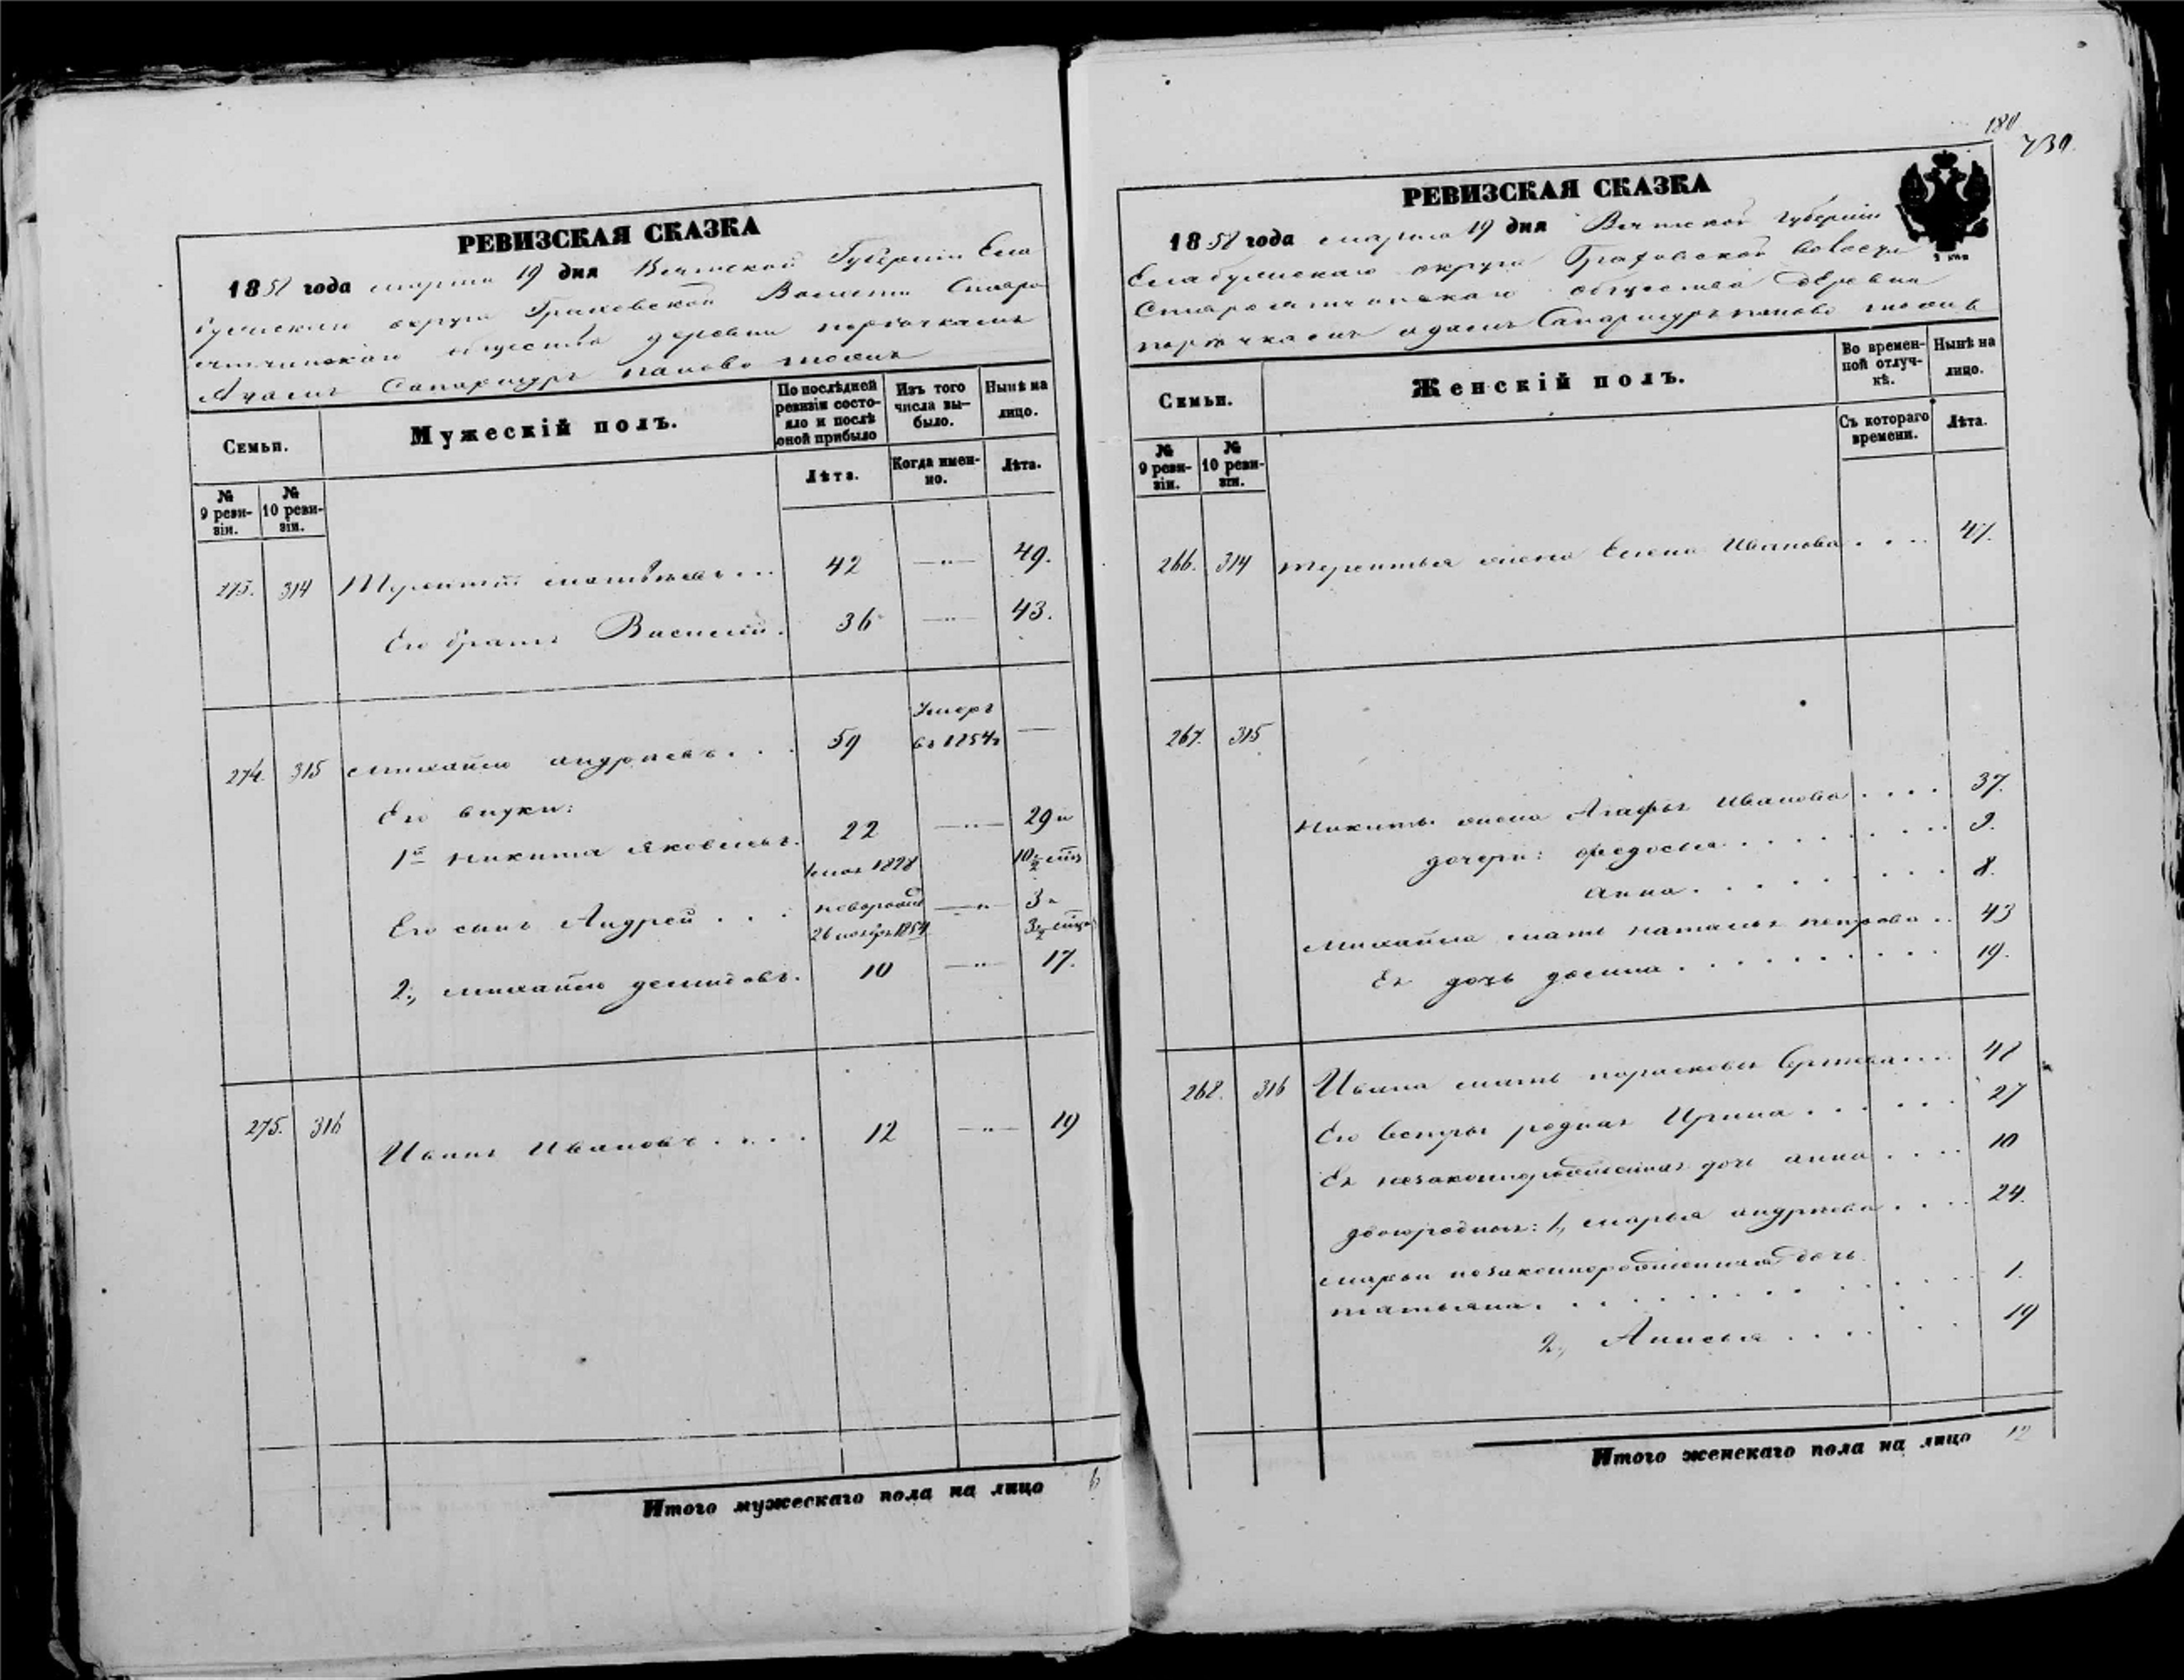 РЕВИЗСКАЯ СКАЗКА
1858 года марта 19 дня Вятской Губернии Ела
бужскаго округа Граховской Волости Старо
общества деревни
Адамъ тожъ
Семьи.
Мужескій полъ.
По послѣдней ревизіи состояло и послѣ оной прибыло
Изъ того числа выбыло.
Нынѣ на лицо.
Лѣта.
Когда именно.
Лѣта.
№ 9 ревизіи.
№ 10 ревизіи.
273. 314 Терентій Матвѣевъ... 42 —"— 49.
Его братъ Василій. 36 —"— 43.
274. 315 Михайло Андреевъ... 59 Умеръ въ 1854 г —
Его внуки:
1й Никита Яковлевъ. 22 —"— 29 и
Его сынъ Андрей... новорожд —"— 3 и
2., Михайло Демидовъ. 10 —"— 17.
275. 316 Иванъ Ивановъ.... 12 —"— 19
Итого мужескаго пола на лицо 6
180
730.
РЕВИЗСКАЯ СКАЗКА
1858 года марта 19 дня Вятской Губерніи
Елабужскаго округа Граховской волости
общества деревни
Адамъ тожъ
Семьи.
Женскій полъ.
Во временной отлучкѣ.
Нынѣ на лицо.
Съ котораго времени.
Лѣта.
№ 9 ревизіи.
№ 10 ревизіи.
266. 314 Терентья жена Елена Иванова.... 47.
267. 315
Никиты жена Агафья Иванова.... 37.
дочери: Федосья......... 9.
Анна......... 8.
Михайла мать Наталья Петрова.. 43
Ея дочь .......... 19.
268. 316 Ивана мать Парасковья ... 48
Его сестры родная Ирина...... 27
Ея незаконнорожденная дочь Анна.... 10
двоюродныя: 1, Марья Андреева.... 24.
Марьи незаконнорожденная дочь
Татьяна........... 1.
2., Анисья...... 19
Итого женскаго пола на лицо 12